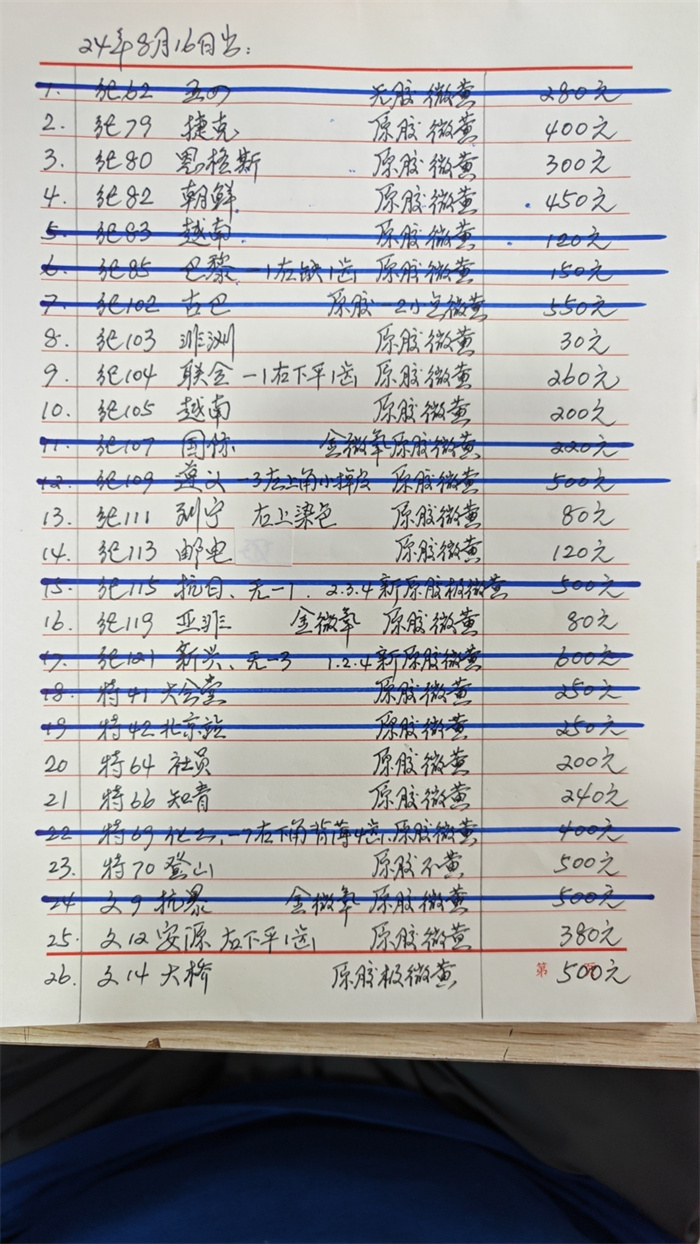 24年8月16日出:
1. 纪62 五四 无胶微黄 280元
2. 纪79 捷克 原胶微黄 400元
3. 纪80 恩格斯 原胶微黄 300元
4. 纪82 朝鲜 原胶微黄 450元
5. 纪83 越南 原胶微黄 120元
6. 纪85 巴黎 -1左缺1齿 原胶微黄 150元
7. 纪102 古巴 原胶-2小点微黄 550元
8. 纪103 非洲 原胶微黄 30元
9. 纪104 联合 -1右下平1齿 原胶微黄 260元
10. 纪105 越南 原胶微黄 200元
11. 纪107 国际 金微氧原胶微黄 220元
12. 纪109 遵义 -3左上角小掉皮 原胶微黄 500元
13. 纪111 列宁 右上染色 原胶微黄 80元
14. 纪113 邮电 原胶微黄 120元
15. 纪115 抗日、无-1. 2.3.4新原胶极微黄 500元
16. 纪119 亚非 金微氧 原胶微黄 80元
17. 纪121 新兴、无-3 1.2.4新原胶微黄 600元
18. 特41 大会堂 原胶微黄 250元
19 特42 北京站 原胶微黄 250元
20 特64 社员 原胶微黄 200元
21 特66 知青 原胶微黄 240元
22 特69 化工、-7右下角背薄4齿、原胶微黄 400元
23. 特70 登山 原胶不黄 500元
24 文9 抗暴 金微氧 原胶微黄 500元
25. 文12 安源 右下平1齿 原胶微黄 380元
26. 文14 大桥 原胶极微黄 第 500元